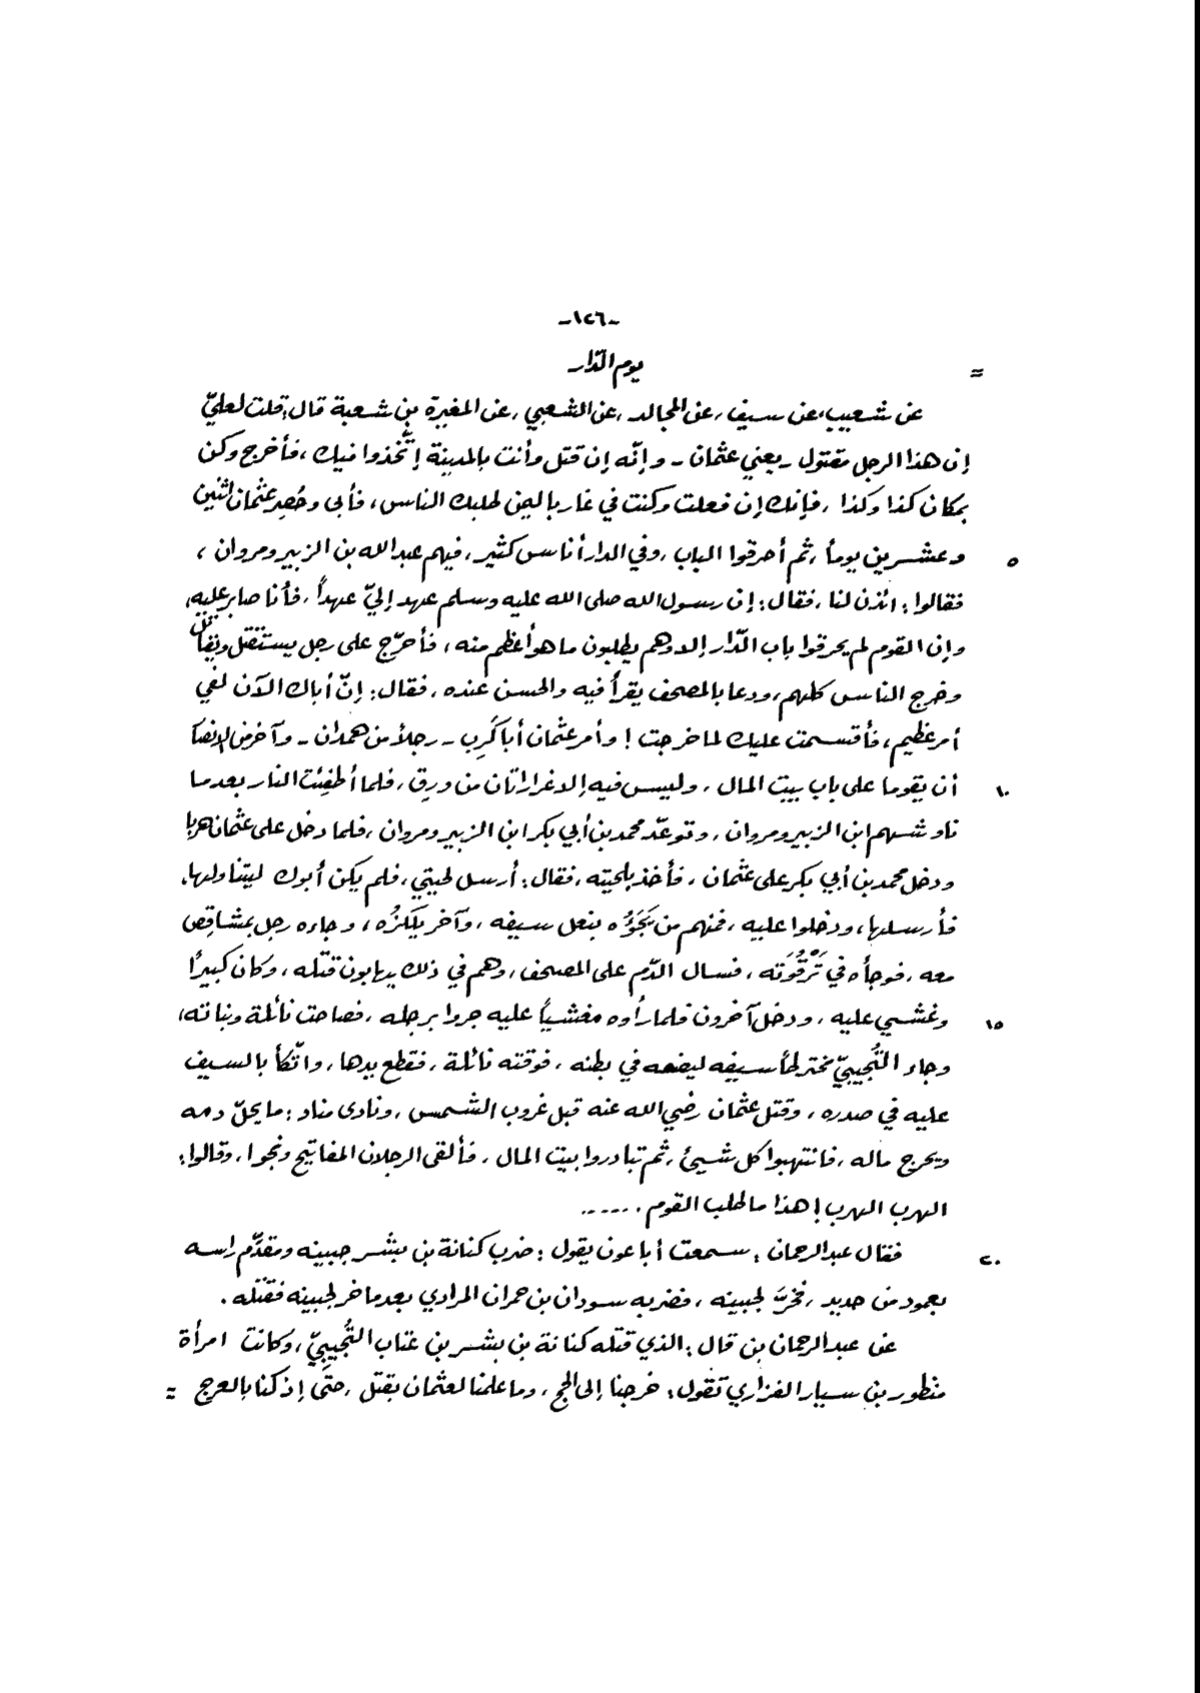 -١٢٦-
= يوم الدّار
عن شعيب، عن سيف، عن المجالد، عن الشعبي، عن المغيرة بن شعبة قال: قلت لعليّ
إن هذا الرجل مقتول - يعني عثمان - وإنّه إن قتل وأنت بالمدينة إتّخذوا فيك، فأخرج وكن
بمكان كذا وكذا، فإنك إن فعلت وكنت في غار باليمن لطلبك الناس، فأبى وحُصِر عثمان اثنين
٥ وعشرين يوماً، ثم أحرقوا الباب، وفي الدار أناس كثير، فيهم عبد الله بن الزبير ومروان،
فقالوا: ائذن لنا، فقال: إن رسول الله صلى الله عليه وسلم عهد إليّ عهداً، فأنا صابر عليه،
وإن القوم لم يحرقوا باب الدّار إلا وهم يطلبون ما هو أعظم منه، فأحرّج على رجل يستقتل ويقاتل
وخرج الناس كلهم، ودعا بالمصحف يقرأ فيه والحسن عنده، فقال: إنّ أباك الآن لفي
أمر عظيم، فأقسمت عليك لما خرجت! وأمر عثمان أبا كَرِب - رجلاً من همدان - وآخر من الأنصار
١٠ أن يقوما على باب بيت المال، وليس فيه إلا غرارتان من ورِق، فلما أطفِئت النار بعدما
ناوشهم ابن الزبير ومروان، وتوعّد محمد بن أبي بكر ابن الزبير ومروان، فلما دخل على عثمان هربا
ودخل محمد بن أبي بكر على عثمان، فأخذ بلحيته، فقال: أرسل لحيتي، فلم يكن أبوك ليتناولها،
فأرسلها، ودخلوا عليه، فمنهم من يَجَؤُه بنعل سيفه، وآخر يَلكزُه، وجاءه رجل بمشاقِص
معه، فوجأه في تَرْقُوَته، فسال الدّم على المصحف، وهم في ذلك يهابون قتله، وكان كبيرًا
١٥ وغشي عليه، ودخل آخرون فلما رأوه مغشياً عليه جروا برجله، فصاحت نائلة وبناته،
وجاء التُّجيبيّ مخترطاً سيفه ليضعه في بطنه، فوقته نائلة، فقطع يدها، واتّكأ بالسيف
عليه في صدره، وقتل عثمان رضي الله عنه قبل غروب الشمس، ونادى مناد: ما يحلّ دمه
ويحرج ماله، فانتهبوا كل شيئ، ثم تبادروا بيت المال، فألقى الرجلان المفاتيح ونجوا، وقالوا:
الهرب الهرب! هذا ما طلب القوم. .....
٢٠ فقال عبد الرحمان: سمعت أبا عون يقول: ضرب كنانة بن بشر جبينه ومقدّم راسه
بعمود من حديد، فخرّ لجبينه، فضربه سودان بن حمران المرادي بعدما خر لجبينه فقتله.
عن عبد الرحمان بن قال: الذي قتله كنانة بن بشر بن عتاب التُّجيبيّ، وكانت امرأة
منظور بن سيار الفزاري تقول: خرجنا إلى الحج، وما علمنا لعثمان بقتل، حتى إذ كنا بالعرج =